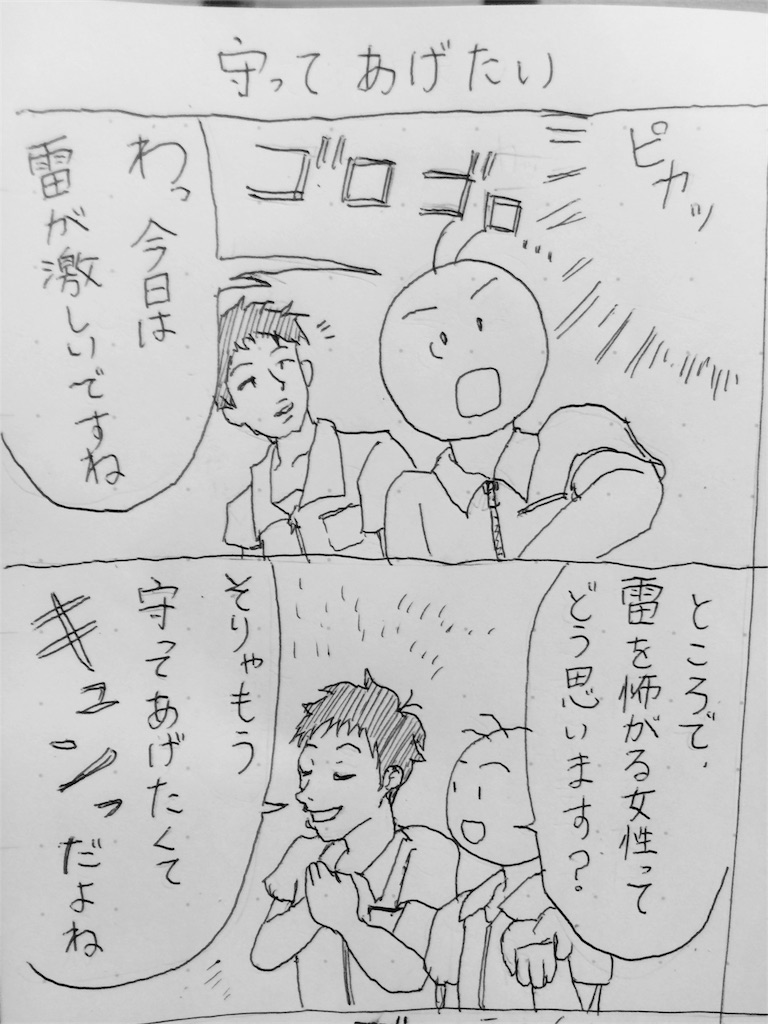 守ってあげたい
ピカッ
ゴロゴロ
わっ今日は
雷が激しいですね
ところで、
雷を怖がる女性って
どう思います?
そりゃもう
守ってあげたくて
キュンっ
だよね